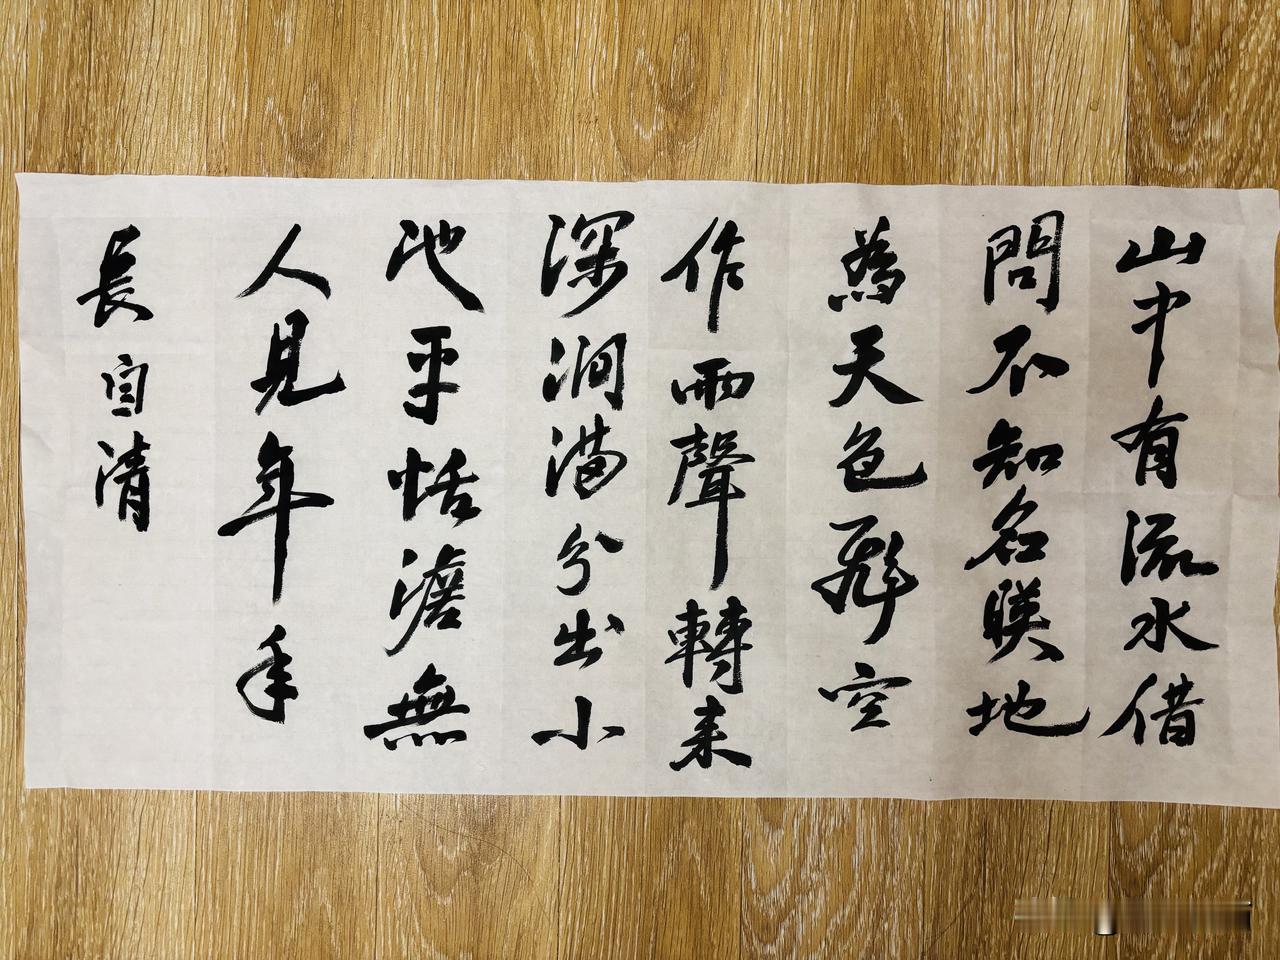 山中有流水借
問不知名暎地
為天色飛空
作雨聲轉来
深澗滿分出小
池平恬澹無
人見年年
長自清